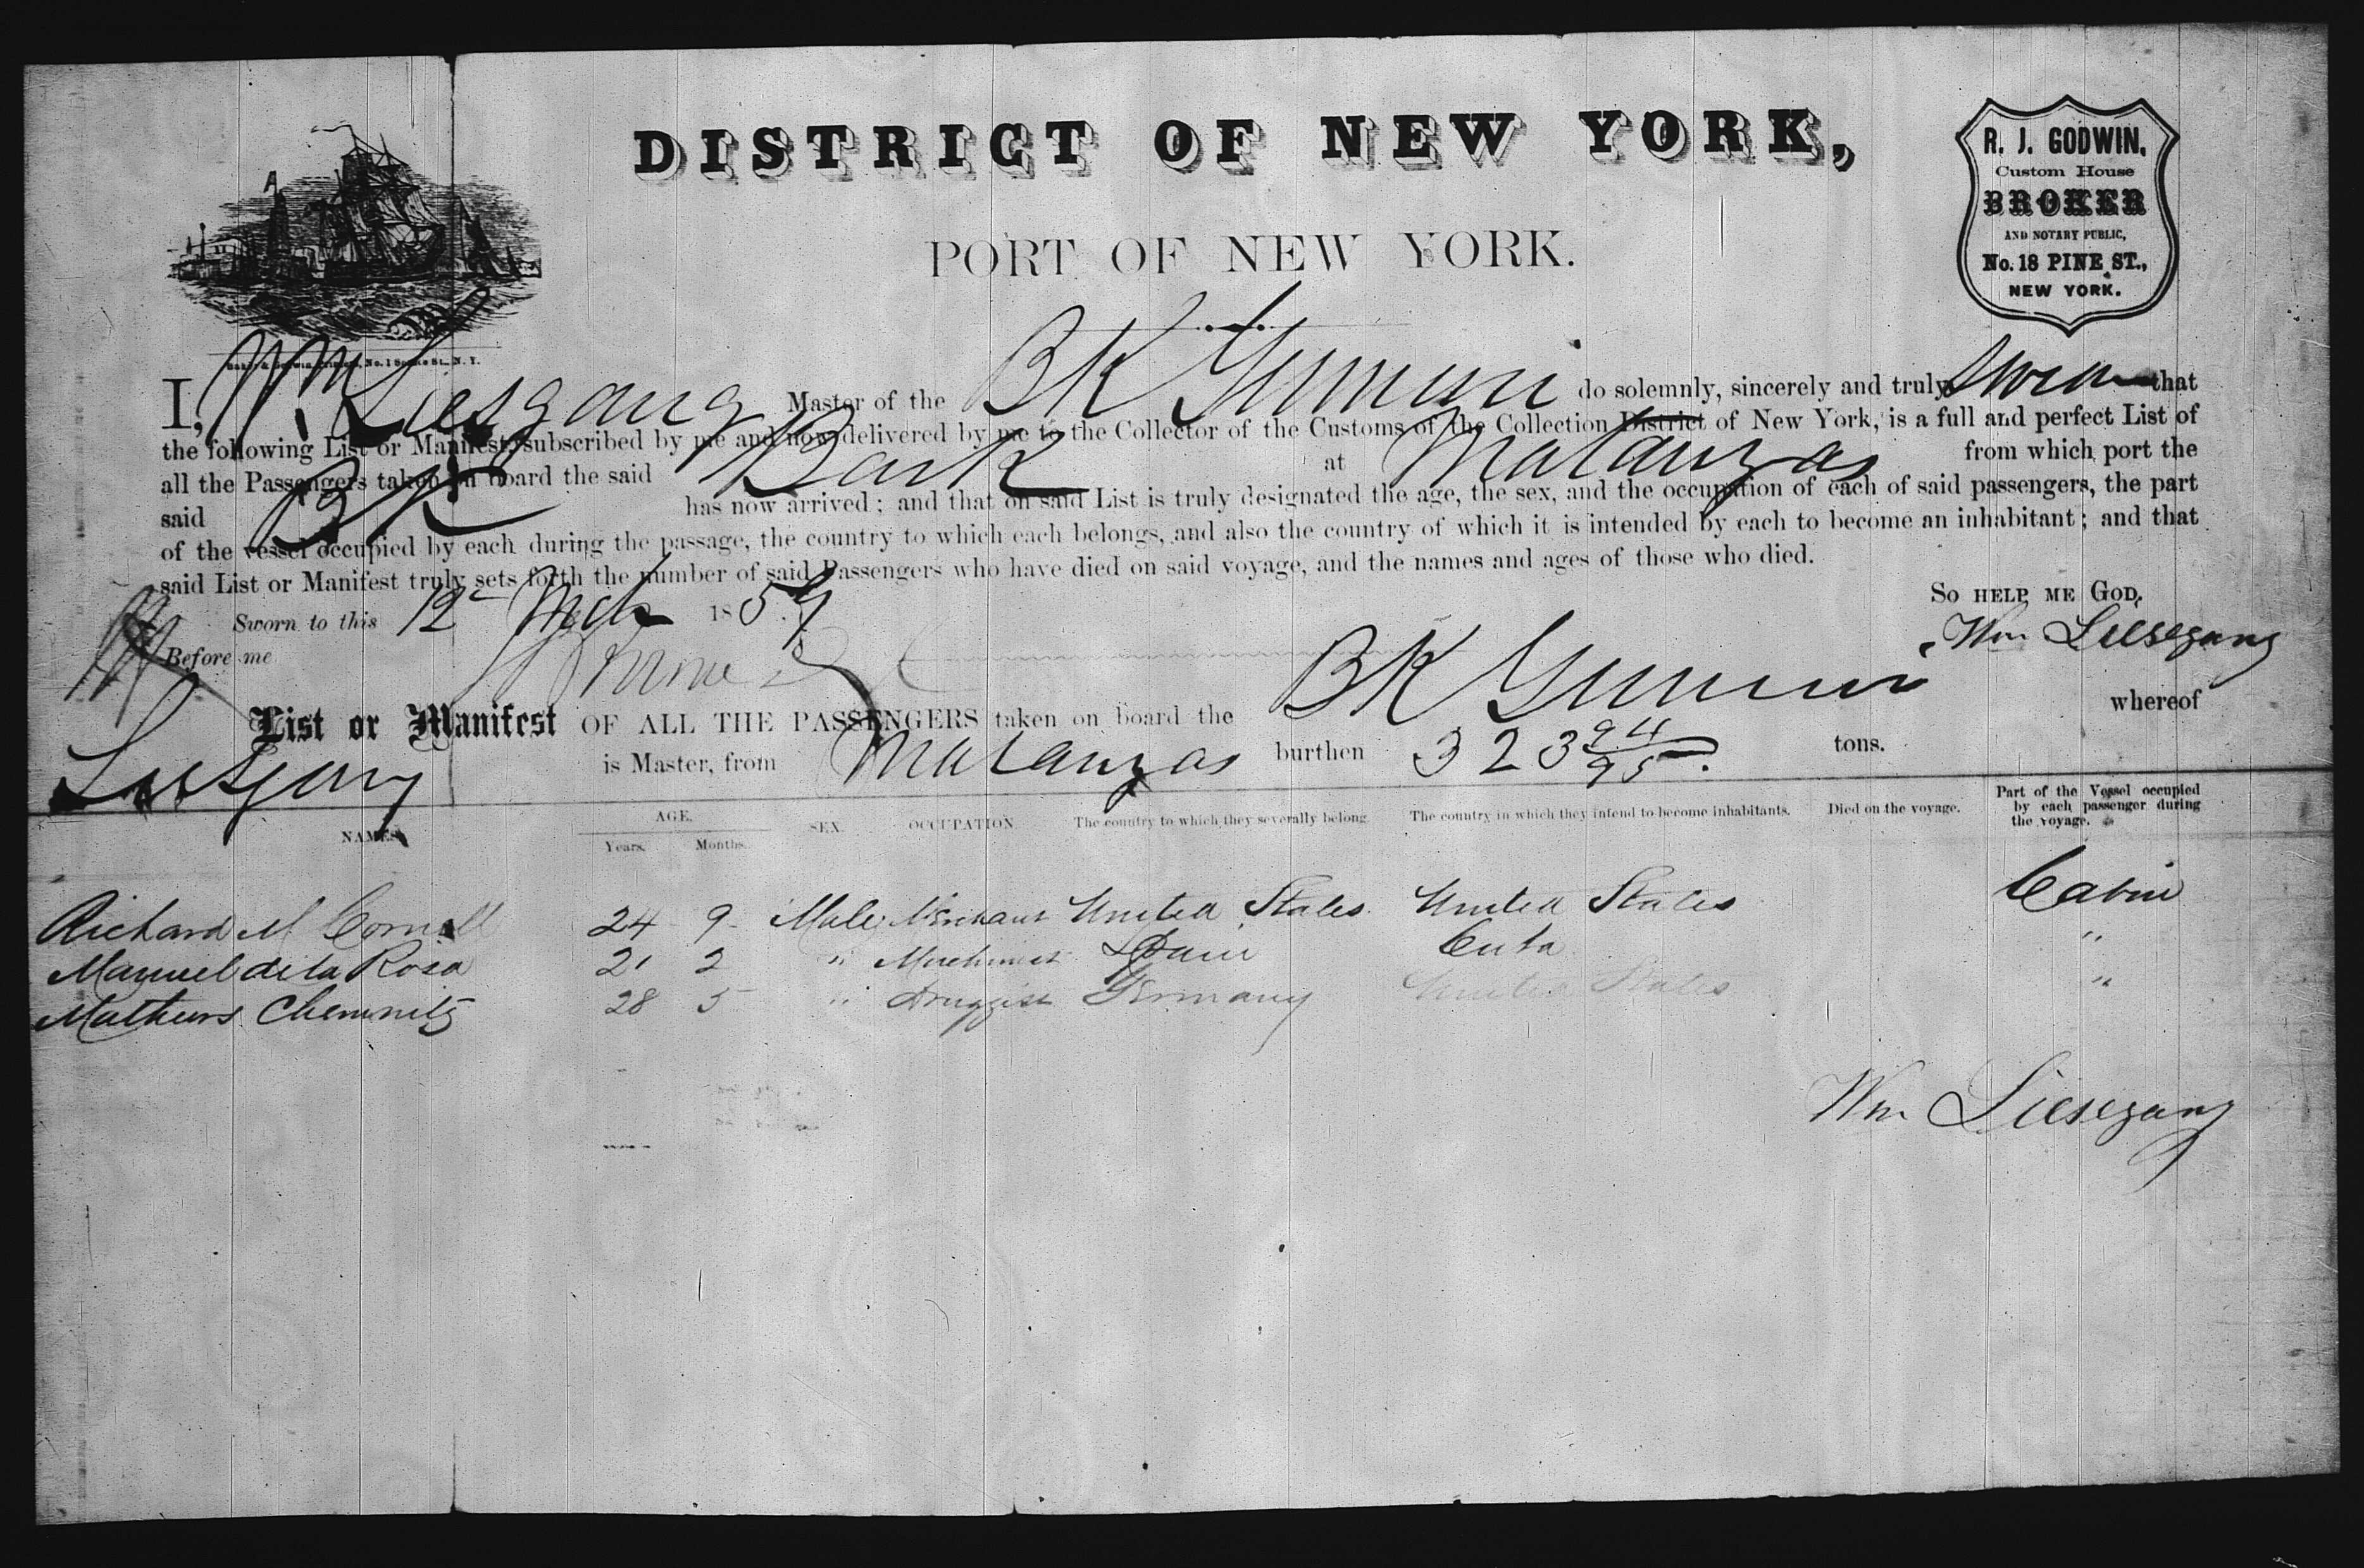 DISTRICT OF NEW YORK,
PORT OF NEW YORK.
R. J. GODWIN,
Custom House
BROKER
AND NOTARY PUBLIC,
No. 18 PINE ST.,
NEW YORK.
I, Wm Liesegang Master of the BK Yumuri do solemnly, sincerely and truly swear that
the following List or Manifest, subscribed by me and now delivered by me to the Collector of the Customs of the Collection District of New York, is a full and perfect List of
all the Passengers taken on board the said Bark at Matanzas from which port the
said BK has now arrived; and that on said List is truly designated the age, the sex, and the occupation of each of said passengers, the part
of the vessel occupied by each during the passage, the country to which each belongs, and also the country of which it is intended by each to become an inhabitant; and that
said List or Manifest truly sets forth the number of said Passengers who have died on said voyage, and the names and ages of those who died.
SO HELP ME GOD.
Sworn to this 12 Mch 1859
Wm Liesegang
Before me
List or Manifest OF ALL THE PASSENGERS taken on board the BK Yumuri whereof
Liesegang is Master, from Matanzas burthen 323 94/95 tons.
NAMES AGE. SEX OCCUPATION The country to which they severally belong. The country in which they intend to become inhabitants. Died on the voyage. Part of the Vessel occupied by each passenger during the voyage.
Years. Months.
Richard M Cornell 24 9 Male Merchant United States United States Cabin
Manuel de la Rosa 21 2 " Machinist Spain Cuba "
Mathews Chemnitz 28 5 " Druggist Germany United States "
Wm Liesegang